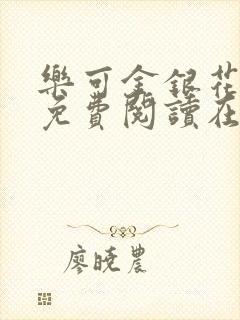 樂可金銀花
免費閱讀在
廖曉農